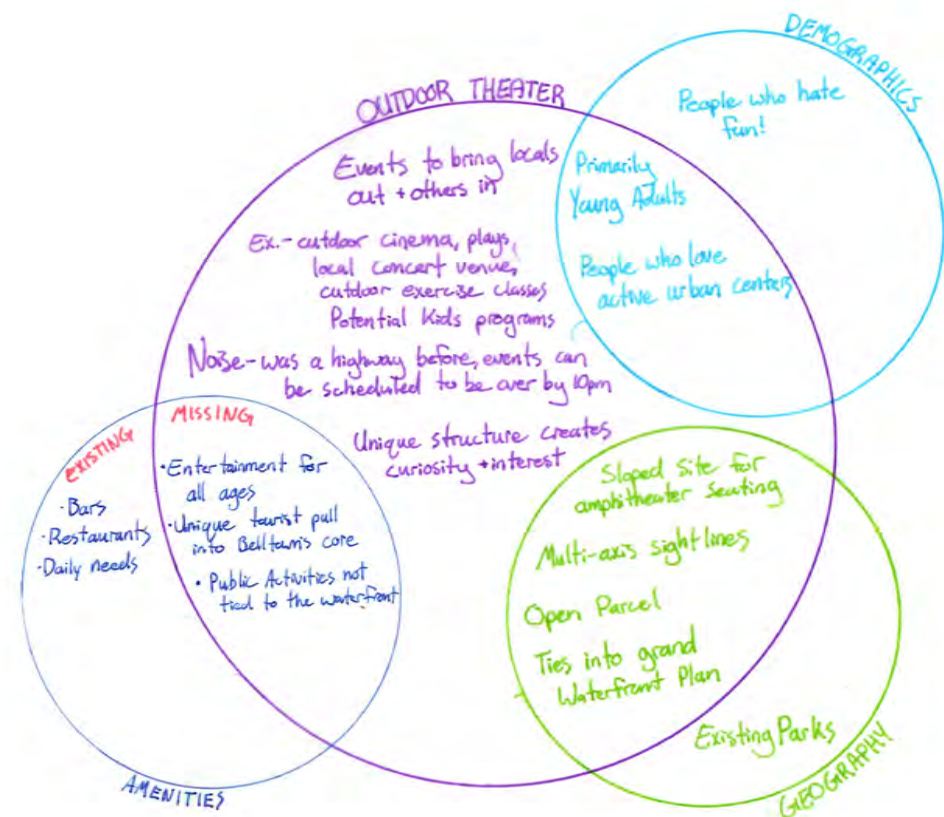 OUTDOOR THEATER
Events to bring locals
out + others in
Ex.- outdoor cinema, plays,
local concert venue,
outdoor exercise classes
Potential Kids programs
Noise - was a highway before, events can
be scheduled to be over by 10pm
Unique structure creates
curiosity + interest
DEMOGRAPHICS
People who hate
fun!
Primarily
Young Adults
People who love
active urban centers
EXISTING
· Bars
· Restaurants
· Daily needs
MISSING
· Entertainment for
all ages
· Unique tourist pull
into Belltown's core
· Public Activities not
tied to the waterfront
AMENITIES
Sloped site for
amphitheater seating
Multi-axis sightlines
Open Parcel
Ties into grand
Waterfront Plan
Existing Parks
GEOGRAPHY